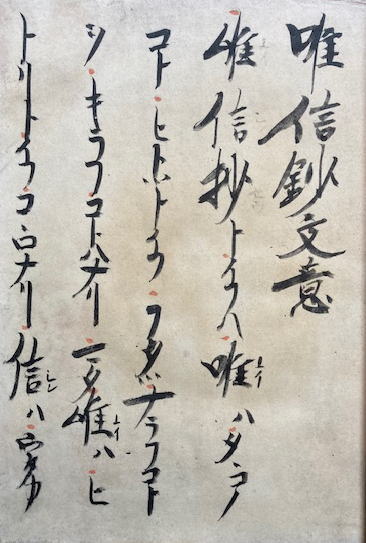 唯信鈔文意
唯信抄トイフハ唯ハタヽコノ
コトヒトツトイフフタツナラフコト
ヲキラフコトハナリマタ唯ハヒ
トリトイフコヽロナリ信ハウタカ